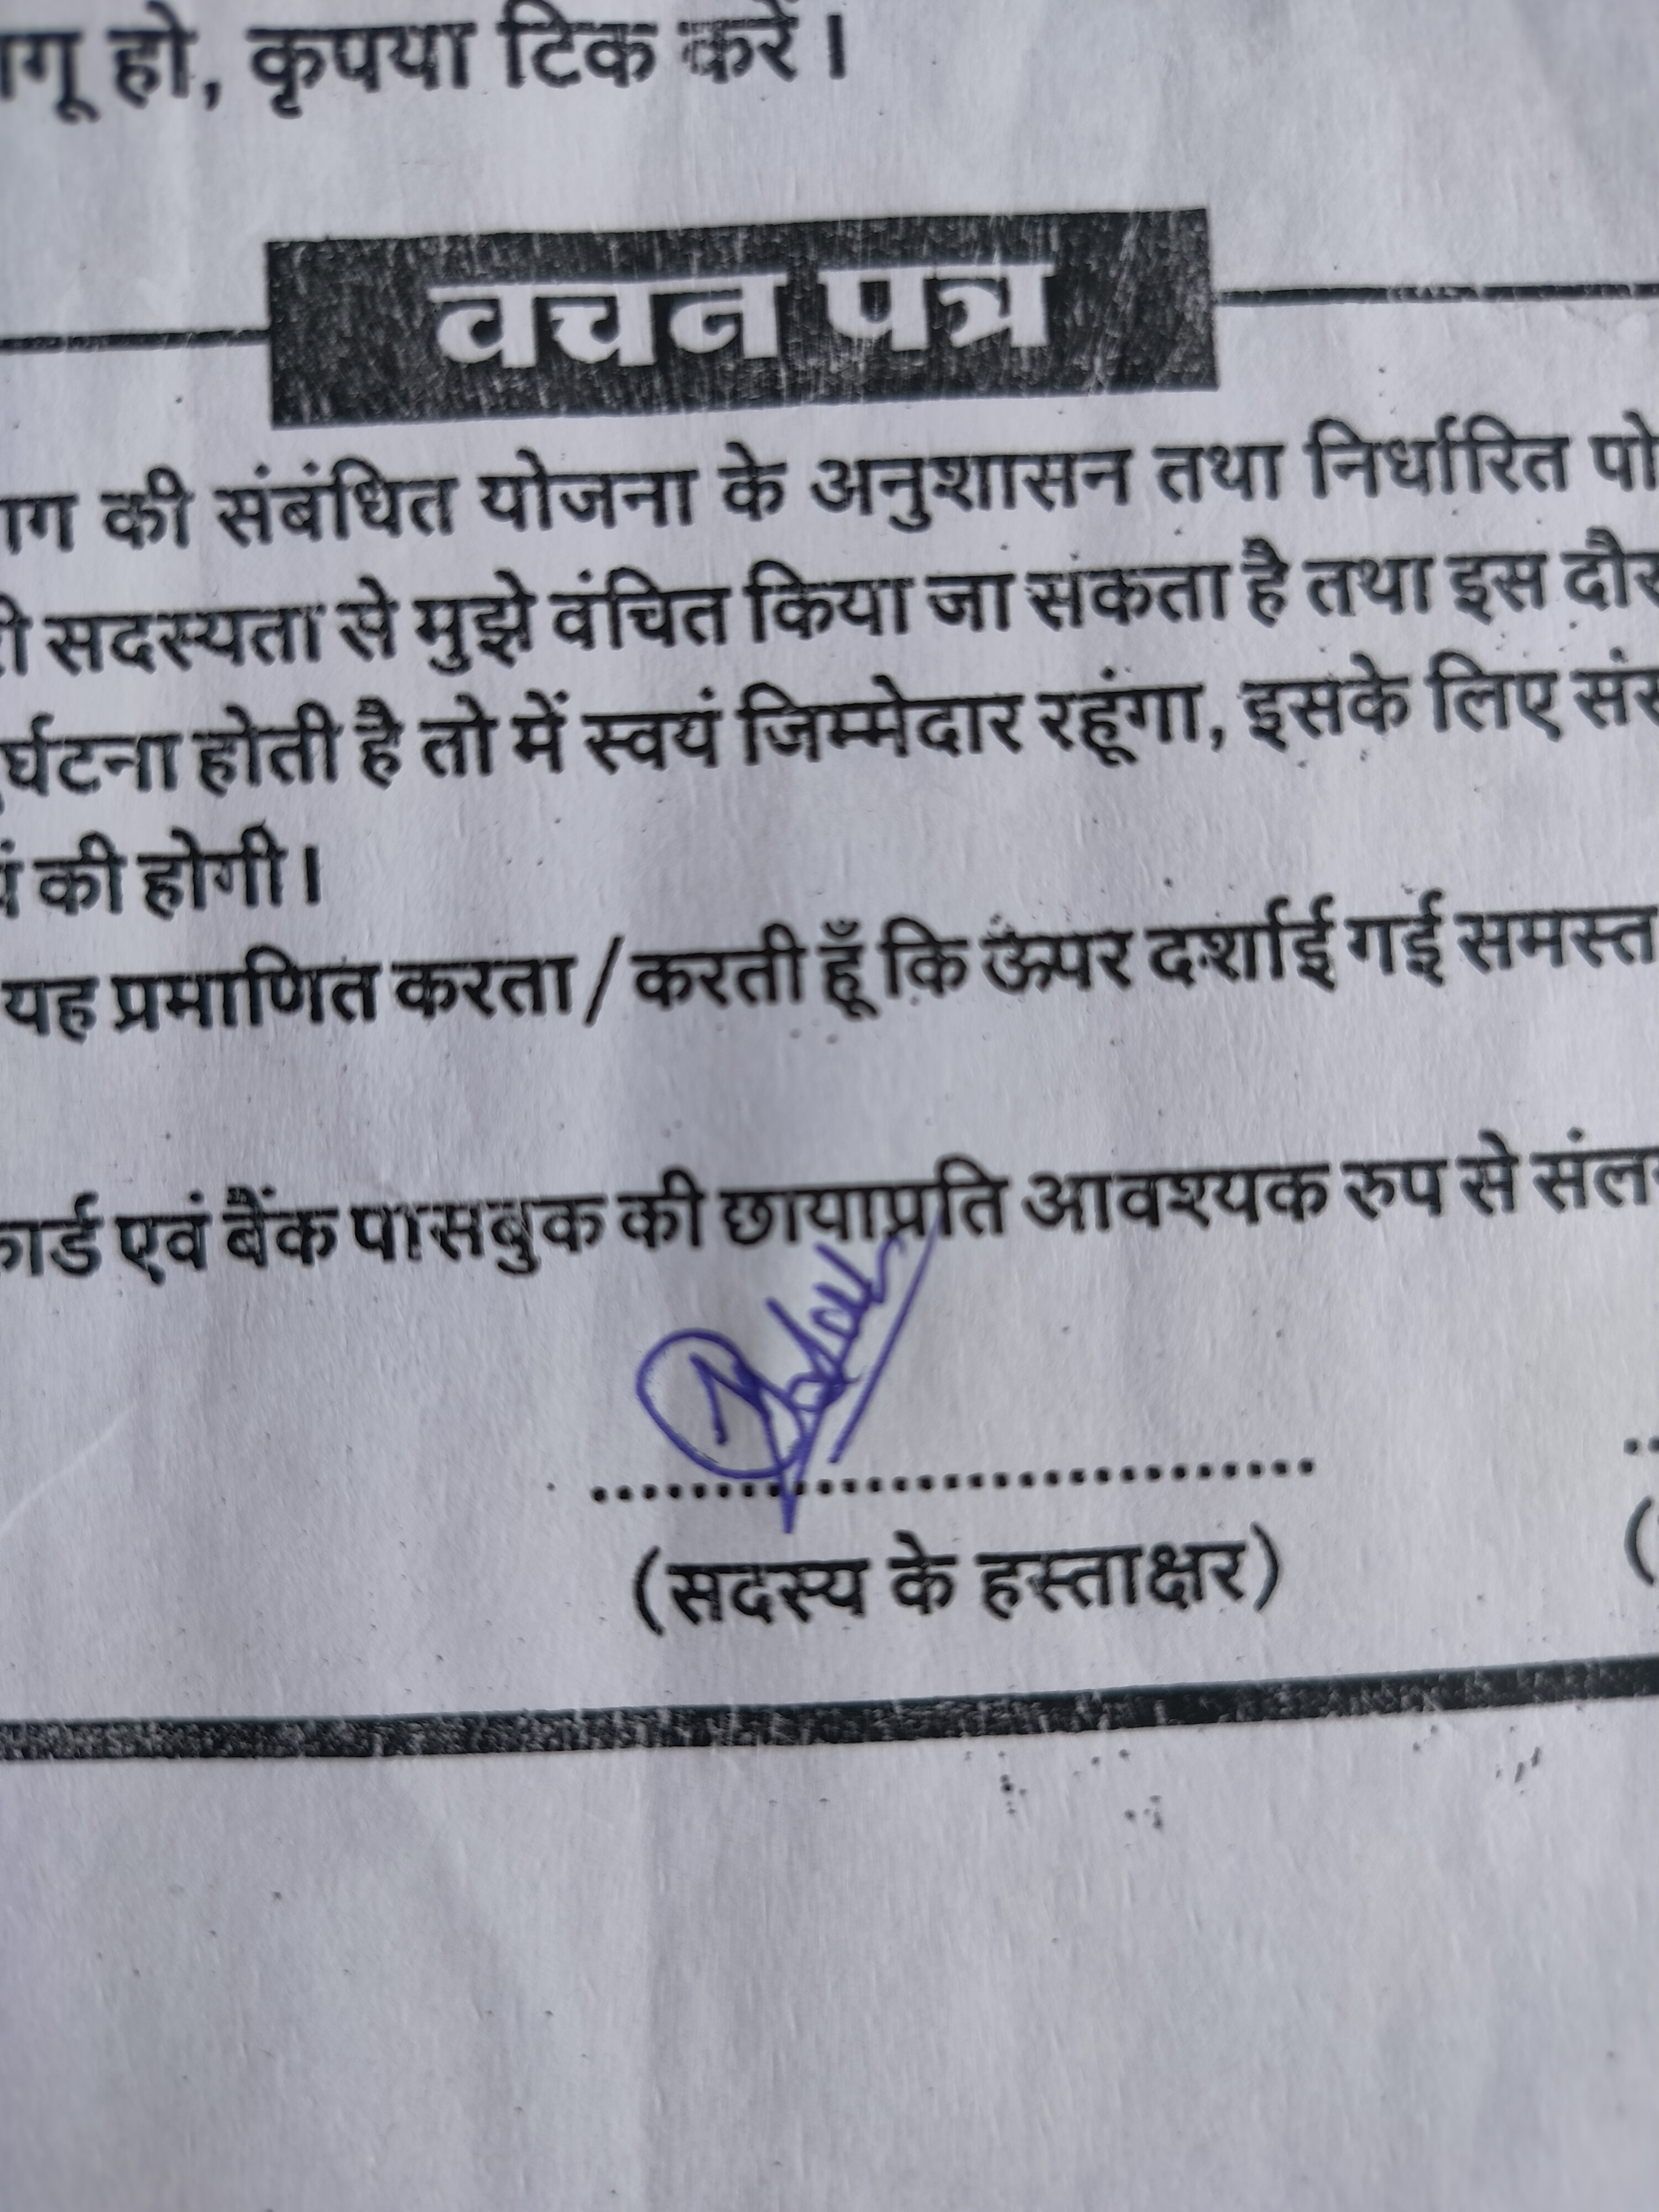 हो, कृपया टिक करें।
वचन पत्र
की संबंधित योजना के अनुशासन तथा निर्धारित
सदस्यता से मुझे वंचित किया जा सकता है तथा इस
होती है तो में स्वयं जिम्मेदार रहूंगा, इसके लिए
की होगी।
यह प्रमाणित करता / करती हूँ कि ऊपर दर्शाई गई समस्त
एवं बैंक पासबुक की छायाप्रति आवश्यक रुप से
(सदस्य के हस्ताक्षर)